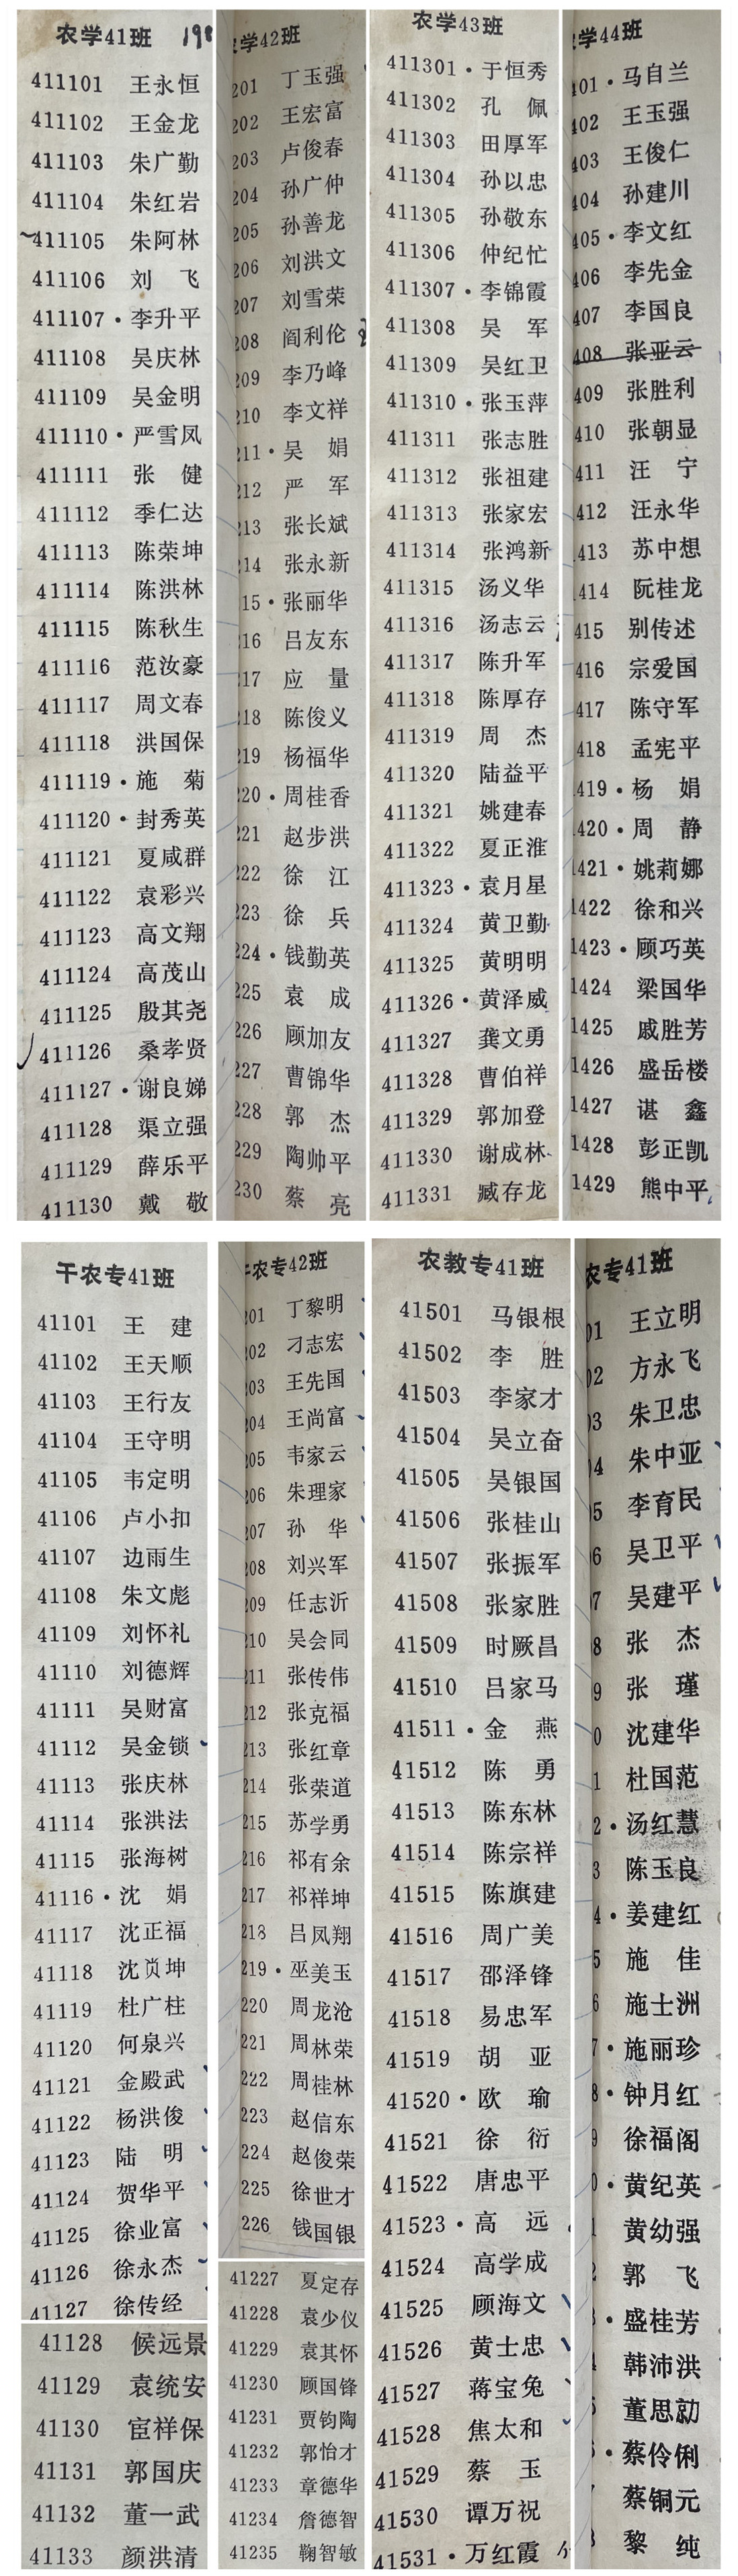 农学41班 198
411101 王永恒
411102 王金龙
411103 朱广勤
411104 朱红岩
411105 朱阿林
411106 刘 飞
411107·李升平
411108 吴庆林
411109 吴金明
411110·严雪凤
411111 张 健
411112 季仁达
411113 陈荣坤
411114 陈洪林
411115 陈秋生
411116 范汝豪
411117 周文春
411118 洪国保
411119·施 菊
411120·封秀英
411121 夏咸群
411122 袁彩兴
411123 高文翔
411124 高茂山
411125 殷其尧
411126 桑孝贤
411127·谢良娣
411128 渠立强
411129 薛乐平
411130 戴 敬
学42班
201 丁玉强
202 王宏富
203 卢俊春
204 孙广仲
205 孙善龙
206 刘洪文
207 刘雪荣
208 阎利伦
209 李乃峰
210 李文祥
211·吴 娟
212 严 军
213 张长斌
214 张永新
15·张丽华
216 吕友东
217 应 量
218 陈俊义
219 杨福华
220·周桂香
221 赵步洪
222 徐 江
223 徐 兵
224·钱勤英
225 袁 成
226 顾加友
227 曹锦华
228 郭 杰
229 陶帅平
230 蔡 亮
农学43班
411301·于恒秀
411302 孔 佩
411303 田厚军
411304 孙以忠
411305 孙敬东
411306 仲纪忙
411307·李锦霞
411308 吴 军
411309 吴红卫
411310·张玉萍
411311 张志胜
411312 张祖建
411313 张家宏
411314 张鸿新
411315 汤义华
411316 汤志云
411317 陈升军
411318 陈厚存
411319 周 杰
411320 陆益平
411321 姚建春
411322 夏正淮
411323·袁月星
411324 黄卫勤
411325 黄明明
411326·黄泽威
411327 龚文勇
411328 曹伯祥
411329 郭加登
411330 谢成林
411331 臧存龙
学44班
401·马自兰
402 王玉强
403 王俊仁
404 孙建川
405·李文红
406 李先金
407 李国良
408 张亚云
409 张胜利
410 张朝显
411 汪 宁
412 汪永华
413 苏中想
414 阮桂龙
415 别传述
416 宗爱国
417 陈守军
418 孟宪平
419·杨 娟
1420·周 静
1421·姚莉娜
1422 徐和兴
1423·顾巧英
1424 梁国华
1425 戚胜芳
1426 盛岳楼
1427 谌 鑫
1428 彭正凯
1429 熊中平
干农专41班
41101 王 建
41102 王天顺
41103 王行友
41104 王守明
41105 韦定明
41106 卢小扣
41107 边雨生
41108 朱文彪
41109 刘怀礼
41110 刘德辉
41111 吴财富
41112 吴金锁
41113 张庆林
41114 张洪法
41115 张海树
41116·沈 娟
41117 沈正福
41118 沈 坤
41119 杜广柱
41120 何泉兴
41121 金殿武
41122 杨洪俊
41123 陆 明
41124 贺华平
41125 徐业富
41126 徐永杰
41127 徐传经
41128 候远景
41129 袁统安
41130 宦祥保
41131 郭国庆
41132 董一武
41133 颜洪清
农专42班
201 丁黎明
202 刁志宏
203 王先国
204 王尚富
205 韦家云
206 朱理家
207 孙 华
208 刘兴军
209 任志沂
210 吴会同
211 张传伟
212 张克福
213 张红章
214 张荣道
215 苏学勇
216 祁有余
217 祁祥坤
218 吕凤翔
219·巫美玉
220 周龙沧
221 周林荣
222 周桂林
223 赵信东
224 赵俊荣
225 徐世才
226 钱国银
41227 夏定存
41228 袁少仪
41229 袁其怀
41230 顾国锋
41231 贾钧陶
41232 郭怡才
41233 章德华
41234 詹德智
41235 鞠智敏
农教专41班
41501 马银根
41502 李 胜
41503 李家才
41504 吴立奋
41505 吴银国
41506 张桂山
41507 张振军
41508 张家胜
41509 时厥昌
41510 吕家马
41511·金 燕
41512 陈 勇
41513 陈东林
41514 陈宗祥
41515 陈旗建
41516 周广美
41517 邵泽锋
41518 易忠军
41519 胡 亚
41520·欧 瑜
41521 徐 衍
41522 唐忠平
41523·高 远
41524 高学成
41525 顾海文
41526 黄士忠
41527 蒋宝兔
41528 焦太和
41529 蔡 玉
41530 谭万祝
41531·万红霞
农专41班
01 王立明
02 方永飞
03 朱卫忠
4 朱中亚
5 李育民
6 吴卫平
7 吴建平
8 张 杰
9 张 瑾
0 沈建华
1 杜国范
2·汤红慧
3 陈玉良
4·姜建红
5 施 佳
6 施士洲
7·施丽珍
8·钟月红
9 徐福阁
0·黄纪英
1 黄幼强
2 郭 飞
·盛桂芳
韩沛洪
董思
·蔡伶俐
蔡铜元
黎 纯